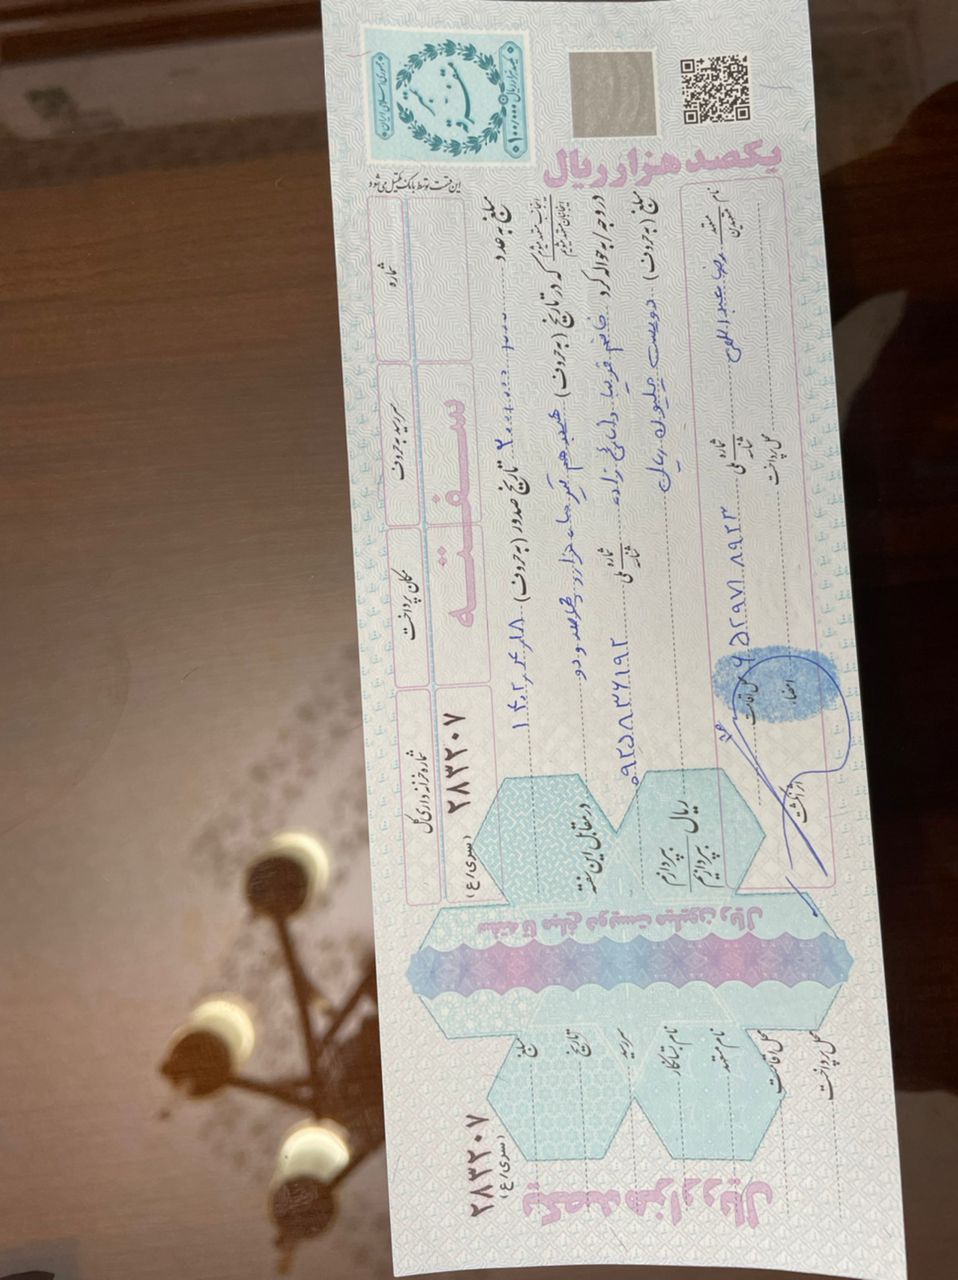 جمهوری اسلامی ایران
تمبر
متفرقه
یکصد هزار ریال ۱۰۰/۰۰۰
شماره
سررسید به حروف
مکان پرداخت
شماره خزانه داری کل
سفته
۲۸۳۲۰۷ (سری/ع)
مبلغ به عدد ۲۰۰,۰۰۰,۰۰۰ تاریخ صدور (به حروف) ۱۴۰۲,۴,۱۸
اینجانب متعهد میشوم
اینجانبان متعهد میشویم
که در تاریخ (به حروف) هیجدهم تیر ماه هزار و چهارصد و دو
در مقابل این سفته
در وجه/به حواله کرد خانم فریبا زاده شماره ملی شناسه ۰۹۲۵۸۳۶۱۹۲
مبلغ (به حروف) دویست میلیون ریال
ریال
بپردازم
بپردازیم
نام متعهد متعهدین رضا عبداللهی شماره ملی شناسه ۶۵۲۹۷۱۸۹۲۳
محل اقامت
محل پرداخت
امضاء
اثر انگشت
یکصد هزار ریال
سفته تا مبلغ دویست میلیون ریال
۲۸۳۲۰۷
(سری/ع)
مبلغ
تاریخ
سررسید
نام بستانکار
نام متعهد
محل اقامت
محل پرداخت
یکصد هزار ریال